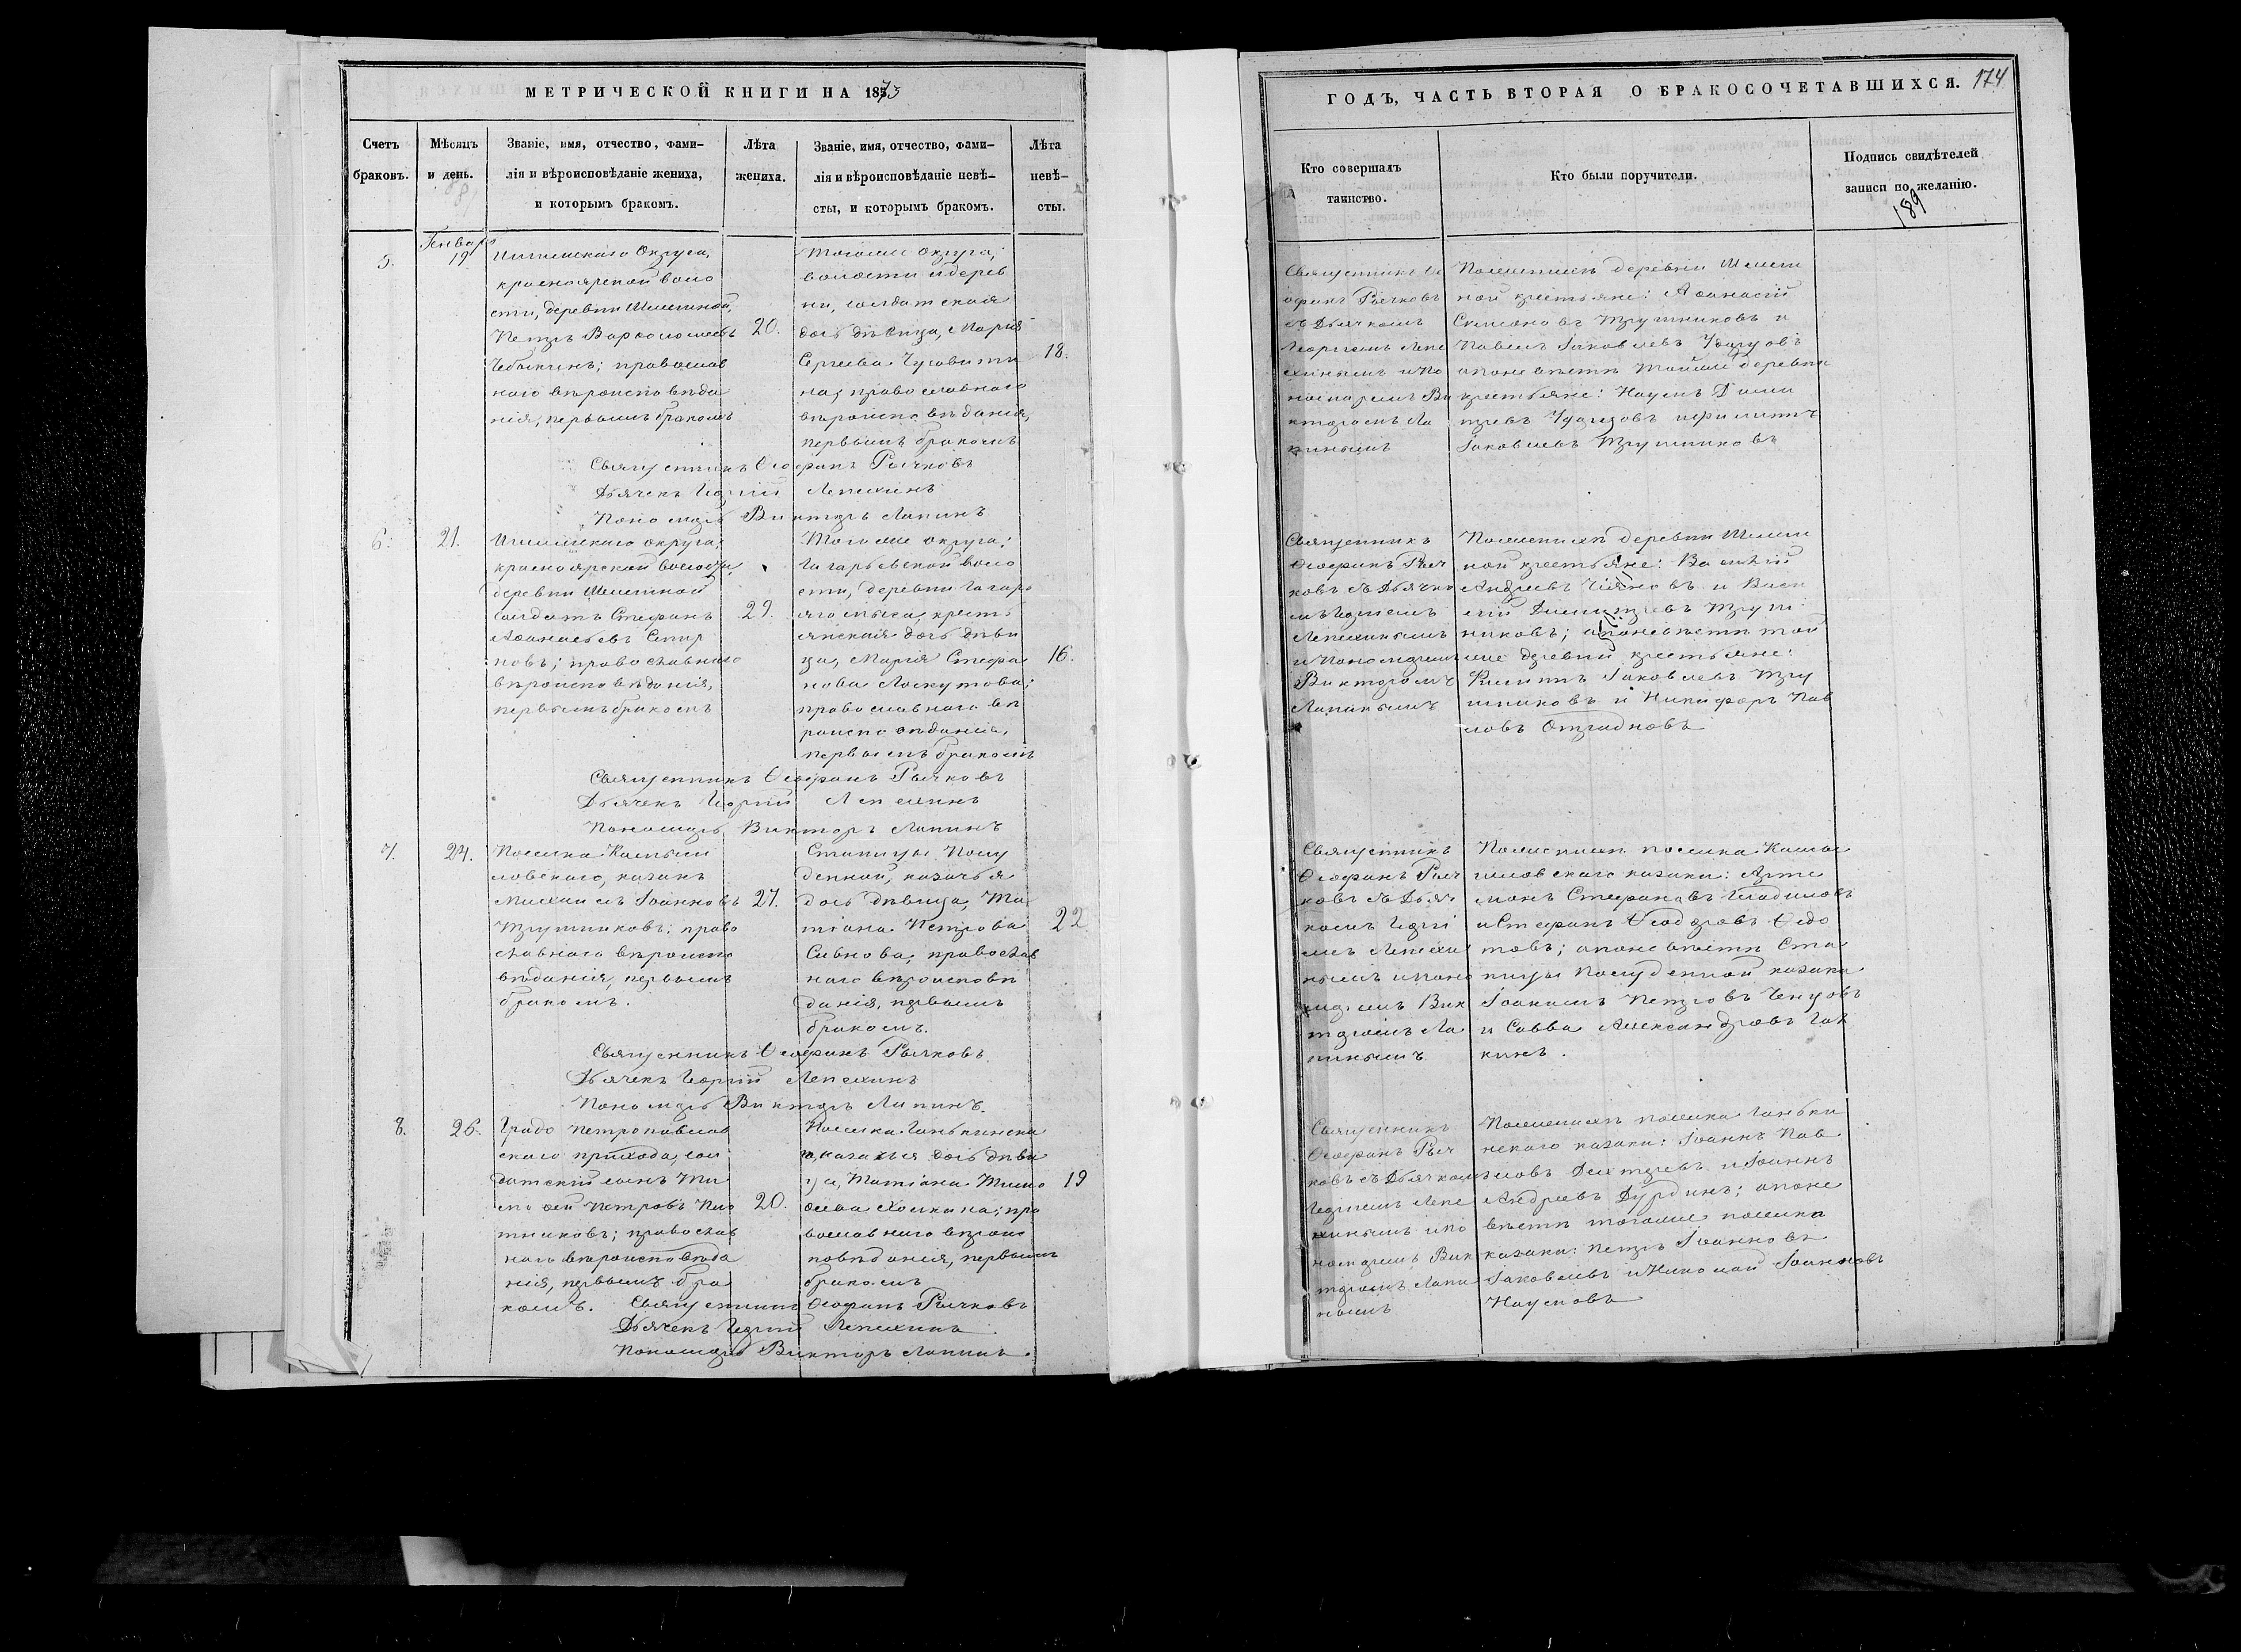 МЕТРИЧЕСКОЙ КНИГИ НА 1873
Счетъ браковъ.
Мѣсяцъ и день.
Званіе, имя, отчество, фами-
лія и вѣроисповѣданіе жениха,
и которымъ бракомъ.
Лѣта жениха.
Званіе, имя, отчество, фами-
лія и вѣроисповѣданіе невѣ-
сты, и которымъ бракомъ.
Лѣта невѣ-
сты.
5.
Генварь
19
Ишимскаго Округа,
красноярской воло
сти, деревни
Петръ Варѳоломеевъ
Чебыкинъ; православ
наго вѣроисповѣда
нія, первымъ бракомъ
20.
Тогоже округа,
волости и дерев
ни, солдатская
дочь дѣвица, Марія
Сергѣева
ная, православнаго
вѣроисповѣданія,
первымъ бракомъ
18.
Священникъ Ѳеофанъ Рычковъ
Дьячекъ Георгій Лепехинъ
Пономарь Викторъ Лапинъ
6.
21.
Ишимскаго округа,
красноярской волости,
деревни
солдатъ Стефанъ
Аѳанасьевъ
новъ; православнаго
вѣроисповѣданія,
первымъ бракомъ
29.
Тогоже округа;
Гагарьевской воло
сти, деревни Гагарь
яго мыса, кресть
янская дочь дѣви
ца, Марія Стефа
нова Лоскутова;
православнаго вѣ
роисповѣданія,
первымъ бракомъ
16.
Священникъ Ѳеофанъ Рычковъ
Дьячекъ Георгій Лепехинъ
Пономарь Викторъ Лапинъ
7.
24.
Поселка Камыш
ловскаго, казакъ
Михаилъ Іоанновъ
Трушниковъ; право
славнаго вѣроиспо
вѣданія, первымъ
бракомъ.
27.
Станицы Полу
денной, казачья
дочь дѣвица, Та
тіана Петрова
православ
наго вѣроисповѣ
данія, первымъ
бракомъ.
22
Священникъ Ѳеофанъ Рычковъ.
Дьячекъ Георгій Лепехинъ
Пономарь Викторъ Лапинъ.
8.
26.
Градо Петропавлов
скаго прихода, сол
датскій сынъ Ти
моѳей Петровъ Пло
тниковъ; православ
наго вѣроисповѣда
нія, первымъ бра
комъ.
20.
Поселка Ганькинска
го, казачья дочь дѣви
ца, Татіана Тимо
ѳеева пра
вославнаго вѣроис
повѣданія, первымъ
бракомъ
19
Священникъ Ѳеофанъ Рычковъ
Дьячекъ Георгій Лепехинъ
Пономарь Викторъ Лапинъ.
ГОДЪ, ЧАСТЬ ВТОРАЯ О БРАКОСОЧЕТАВШИХСЯ. 174
Кто совершалъ
таинство.
Кто были поручители.
Подпись свидѣтелей
записи по желанію.
189
Священникъ Ѳе
офанъ Рычковъ
съ Дьячкомъ
Георгіемъ Лепе
хинымъ и По
номаремъ Ви
кторомъ Ла
пинымъ
По женихѣ деревни
ной крестьяне: Аѳанасій
Симоновъ Трушниковъ и
Павелъ Іаковлевъ
а по невѣстѣ той же деревни
крестьяне: Наумъ Дими
тріевъ и Филиппъ
Іаковлевъ Трушниковъ
Священникъ
Ѳеофанъ Рыч
ковъ съ Дьячко
мъ Георгіемъ
Лепехинымъ
и Пономаремъ
Викторомъ
Лапинымъ
По женихѣ деревни
ной крестьяне: Василій
Андреевъ и Васи
лій Димитріевъ Труш
никовъ; а по невѣстѣ той
же деревни крестьяне:
Филиппъ Іаковлевъ Тру
шниковъ и Никифоръ Пав
ловъ
Священникъ
Ѳеофанъ Рыч
ковъ съ Дьяч
комъ Георгі
емъ Лепехи
нымъ и Поно
маремъ Вик
торомъ Ла
пинымъ
По женихѣ поселка Камы
шловскаго казаки: Арте
монъ Стефановъ
и Стефанъ Ѳеодоровъ Ѳедо
товъ; а по невѣстѣ Ста
ницы Полуденной казаки
Іоакимъ Петровъ
и Савва Александровъ Гал
кинъ.
Священникъ
Ѳеофанъ Рыч
ковъ съ Дьячкомъ
Георгіемъ Лепе
хинымъ и По
номаремъ Вик
торомъ Лапи
нымъ
По женихѣ поселка Ганьки
нскаго казаки: Іоаннъ Пав
ловъ и Іоаннъ
Андреевъ Дурдинъ; а по не
вѣстѣ тогоже поселка
казаки: Петръ Іоанновъ
Іаковлевъ и Николай Іоанновъ
Наумовъ